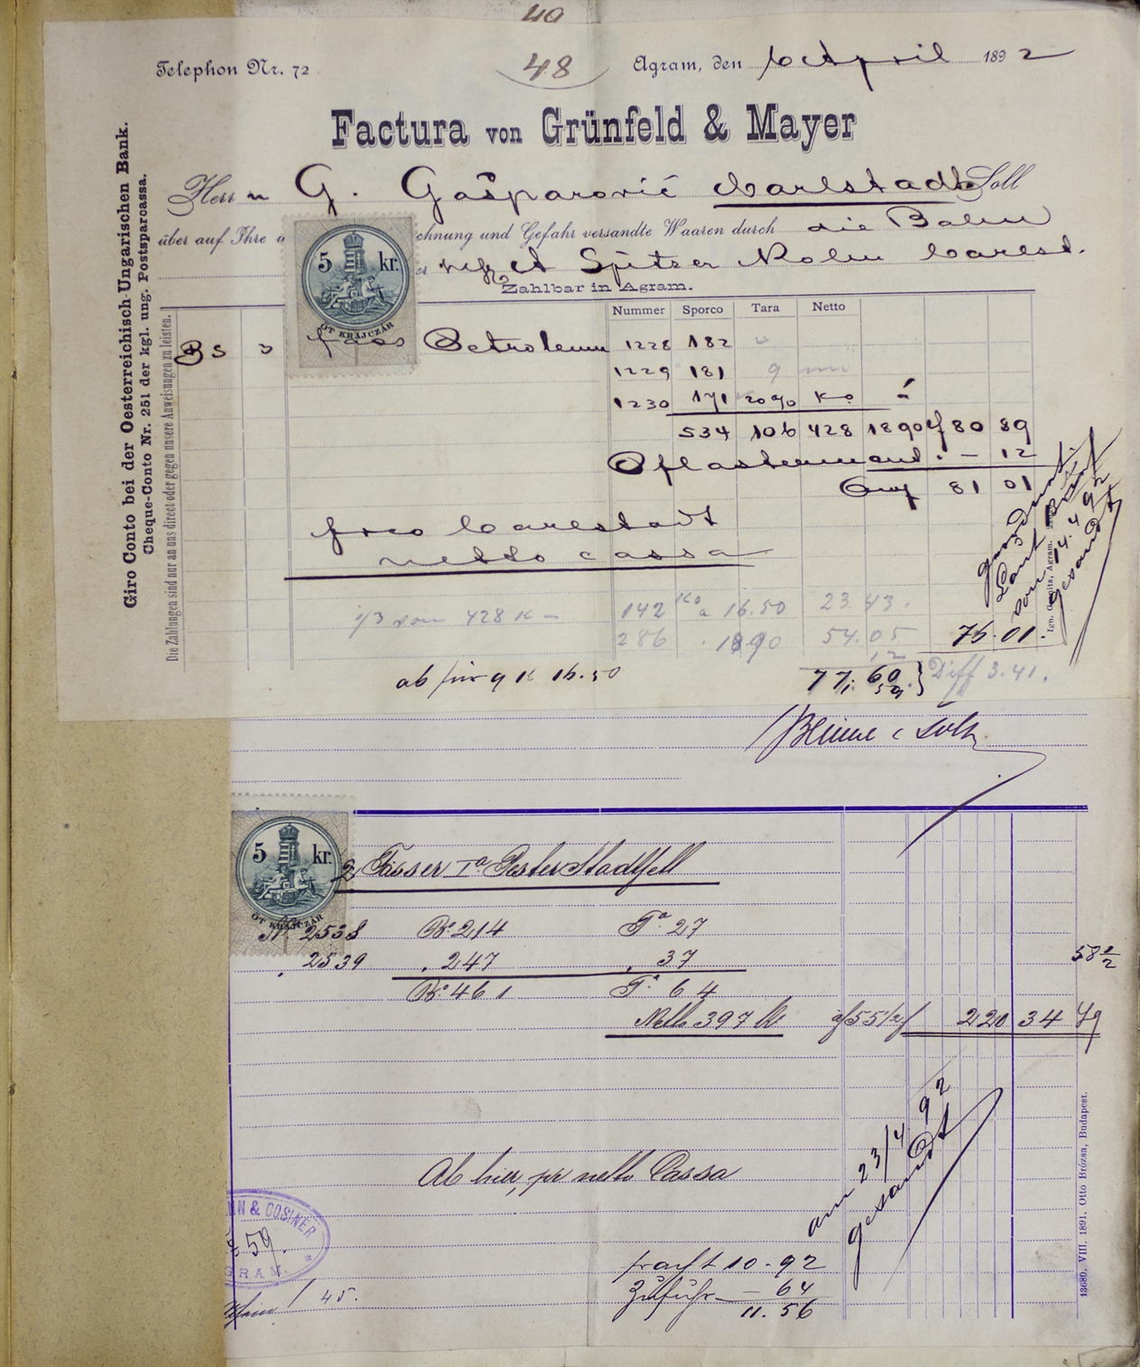 40
48
Telephon Nr. 72
Agram, den 6 April 1892
Factura von Grünfeld & Mayer
Herrn G. Gašparović Carlstadt Soll
über auf Ihre chnung und Gefahr versandte Waaren durch die Bahn
Spitzer
Zahlbar in Agram.
Giro Conto bei der Oesterreichisch-Ungarischen Bank.
Cheque-Conto Nr. 251 der kgl. ung. Postsparcassa.
Die Zahlungen sind nur an uns direct oder gegen unsere Anweisungen zu leisten.
5 kr.
ÖT KRAJCZÁR
Nummer Sporco Tara Netto
3 fass Petroleum 1228 182
1229 181
1230 171 20% Ko
534 106 428 1890 80 89
Pflastermaut - 12
81 01
fco Carlstadt
netto cassa
1/3 von 428 K 142 Ko a 16.50 23.43.
286 1890 54.05 76.01.
12
ab für 9 K 16.50 77.60 Diff 3.41.
Laut
vom 14.4 92
gesandt
5 kr.
ÖT KRAJCZÁR
2 Fässer Ia Pester Stadtfett
No 2538 Bo 214 Ta 27
" 2539 " 247 " 37
58 1/2
Bo 461 Ta 64
Netto 397 K 220 34 49
am 23/4 92
gesandt
Ab hier, per netto Cassa
NN & COSINER
59.
GRAM.
45.
fracht 10.92
Zufuhr - 64
11.56
13680. VIII. 1891. Otto Brózsa, Budapest.